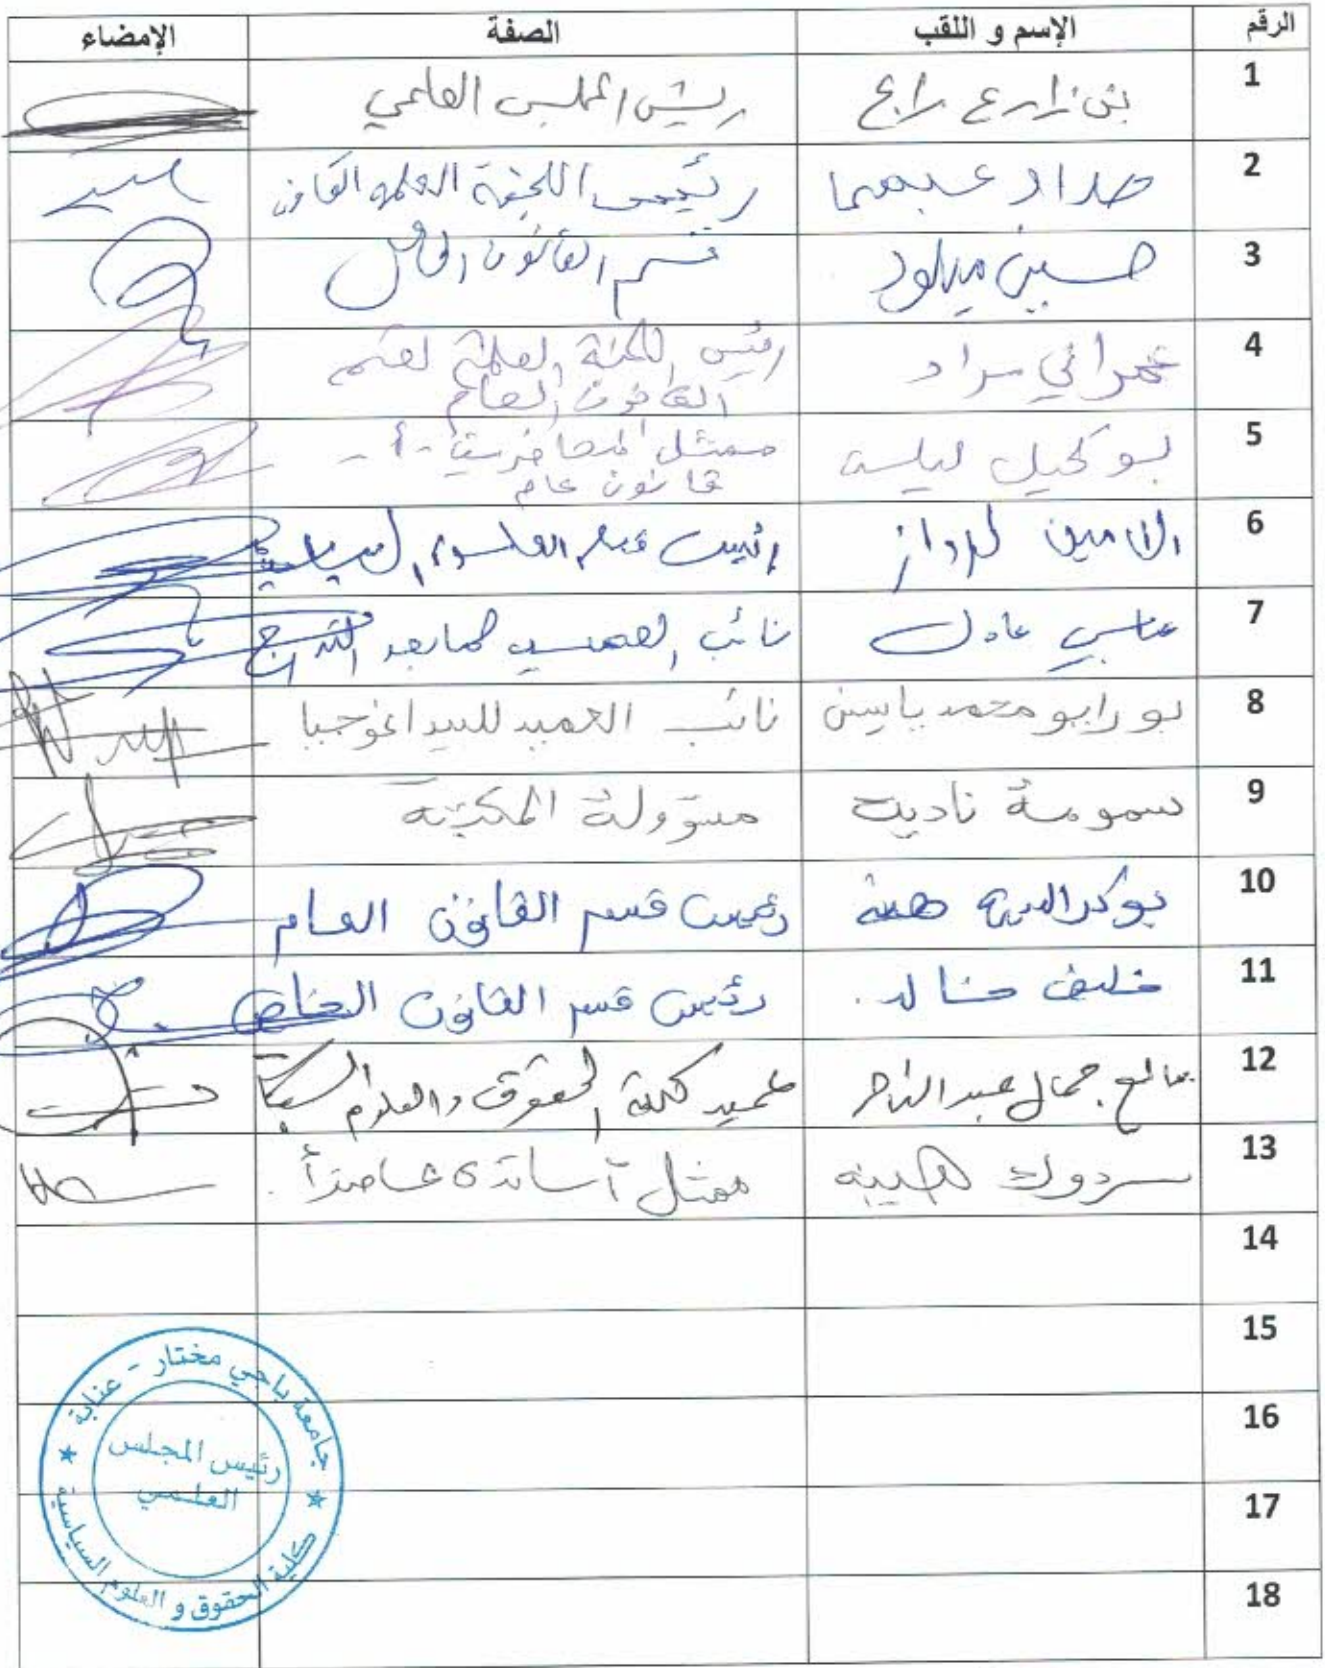 الرقم الإسم و اللقب الصفة الإمضاء
1 بن زارع رابح رئيس المجلس العلمي
2 حداد عيسى رئيس اللجنة العلمية القانون
3 حسين ميلود قسم القانون الخاص
4 عمراني مراد رئيس اللجنة العلمية لقسم
القانون العام
5 بوكحيل ليلى ممثل المحاضرين - أ -
قانون عام
6 الامين لرواز رئيس قسم العلوم السياسية
7 عباسي عادل نائب العميد لما بعد التدرج
8 بورايو محمد ياسين نائب العميد للبيداغوجيا
9 سمومة نادية مسؤولة المكتبة
10 هبة رئيس قسم القانون العام
11 خليف خالد. رئيس قسم القانون الخاص
12 جمال عبد الناصر عميد كلية الحقوق والعلوم السياسية
13 سردوك هيبة ممثل أساتذة
14
15
16
17
18
جامعة باجي مختار - عنابة
رئيس المجلس
العلمي
كلية الحقوق و العلوم السياسية